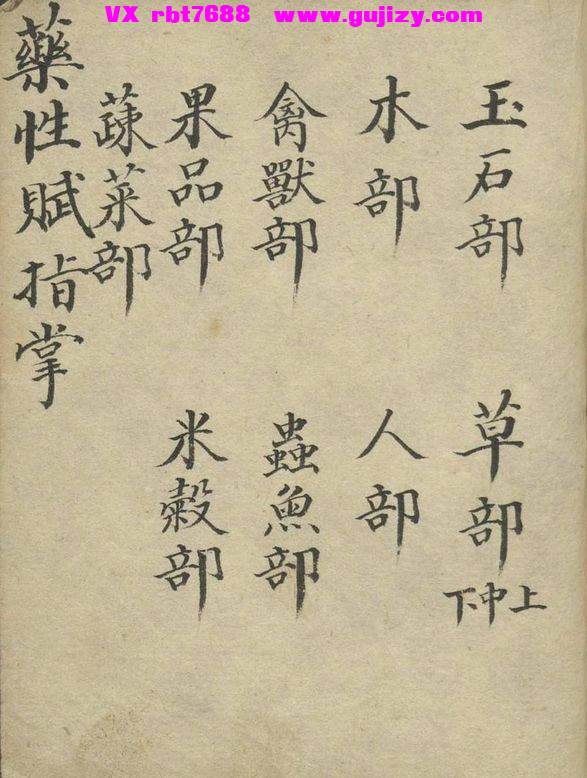 VX rbt7688 www.gujizy.com
玉石部
草部
上中下
木部
人部
禽獸部
蟲魚部
果品部
米穀部
蔬菜部
藥性賦指掌